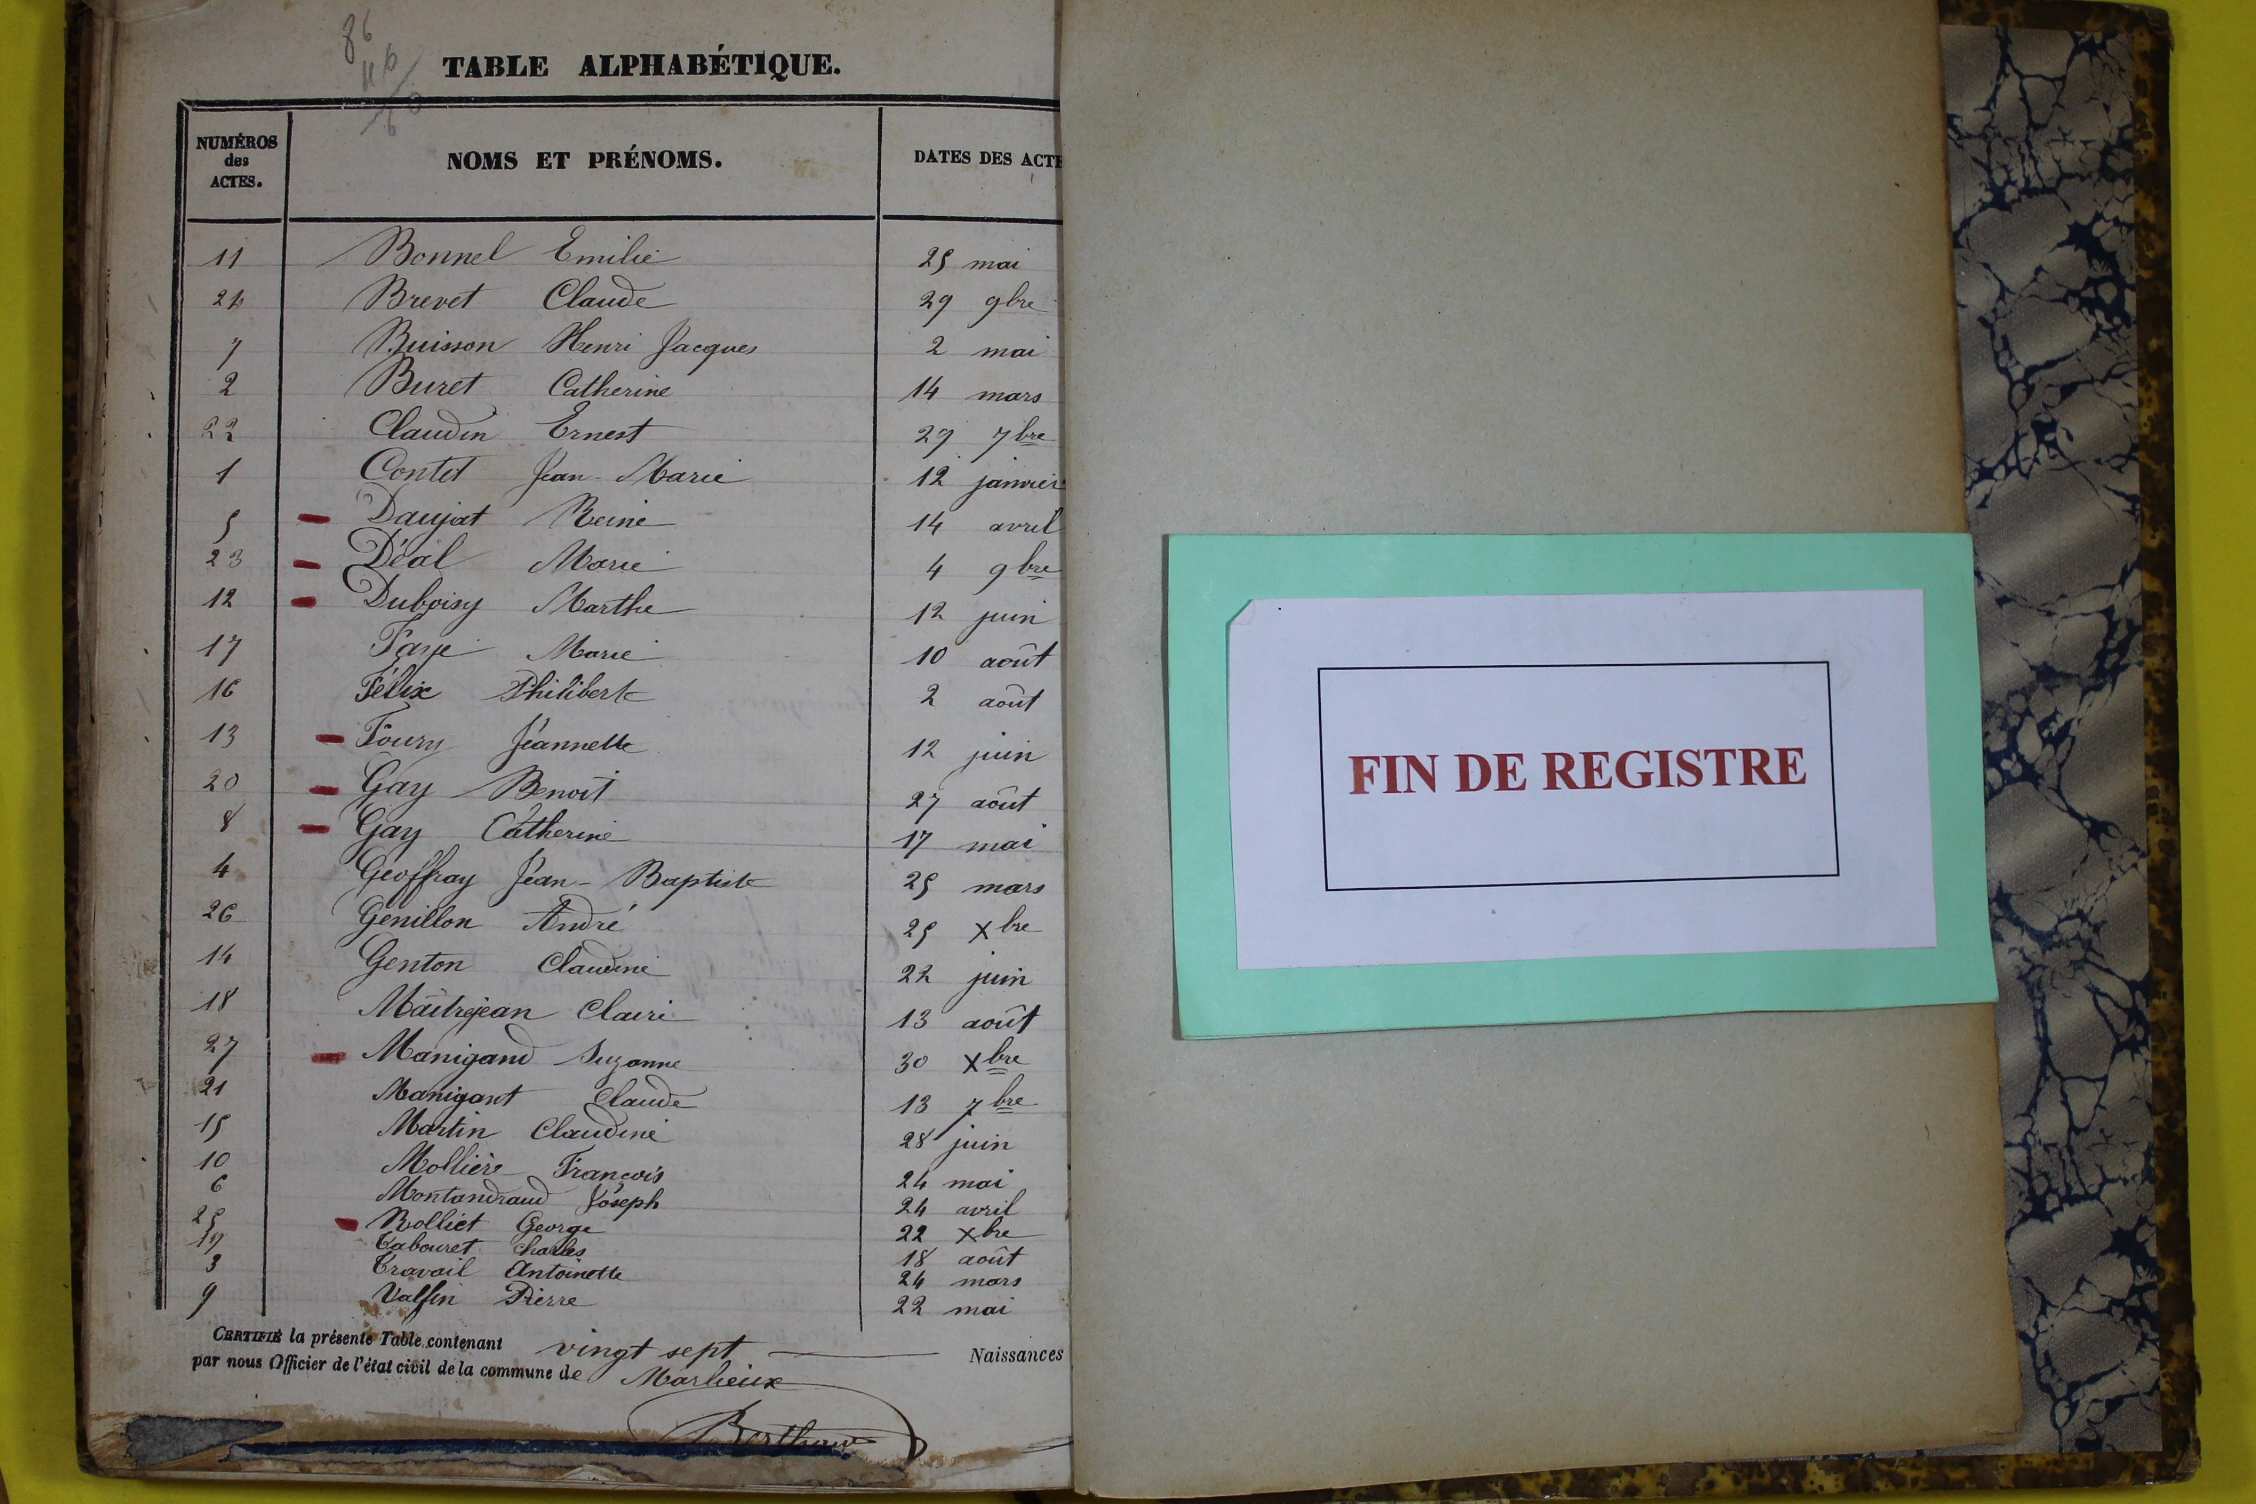 86
TABLE ALPHABÉTIQUE.
NUMÉROS des ACTES. NOMS ET PRÉNOMS. DATES DES ACTE
11 Bonnel Emilie 25 mai
24 Brevet Claude 29 9bre
7 Buisson Henri Jacques 2 mai
2 Buret Catherine 14 mars
22 Claudin Ernest 29 7bre
1 Contet Jean-Marie 12 janvier
5 Daujat Reine 14 avril
23 Déal Marie 4 9bre
12 Duboisy Marthe 12 juin
17 Faye Marie 10 août
16 Félix Philiberte 2 août
13 Foury Jeannette 12 juin
20 Gay Benoit 27 août
8 Gay Catherine 17 mai
4 Geoffray Jean-Baptiste 25 mars
26 Genillon André 25 Xbre
14 Genton Claudine 22 juin
18 Maîtrejean Claire 13 août
27 Manigand Suzanne 30 Xbre
21 Manigant Claude 13 7bre
15 Martin Claudine 28 juin
10 Mollière François 24 mai
6 Montandraud Joseph 24 avril
25 Rolliet George 22 Xbre
19 Tabouret Charles 18 août
3 Travail Antoinette 24 mars
9 Valfin Pierre 22 mai
CERTIFIÉ la présente Table contenant vingt sept Naissances
par nous Officier de l'état civil de la commune de Marlieux
FIN DE REGISTRE